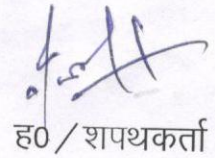 ह0 / शपथकर्ता